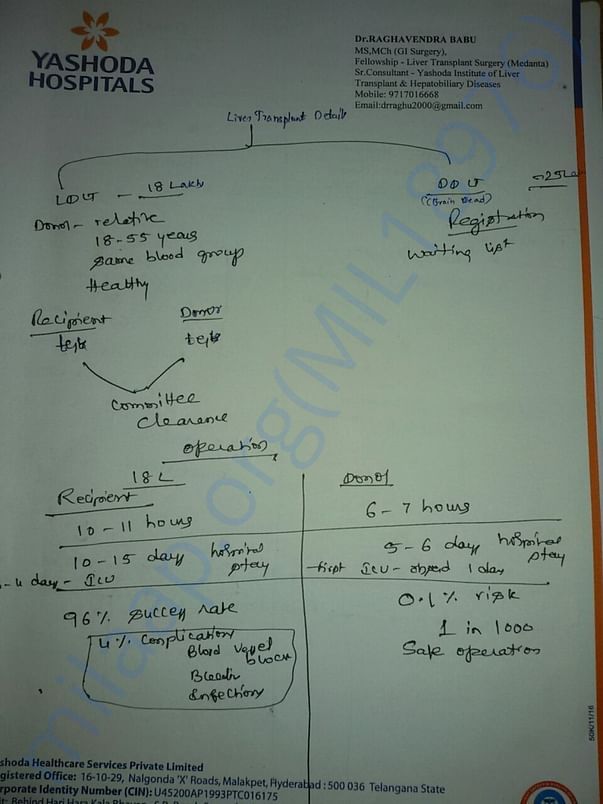 YASHODA
HOSPITALS
Dr.RAGHAVENDRA BABU
MS,MCh (GI Surgery),
Fellowship - Liver Transplant Surgery (Medanta)
Sr.Consultant - Yashoda Institute of Liver
Transplant & Hepatobiliary Diseases
Mobile: 9717016668
Email:drraghu2000@gmail.com
Liver Transplant Details
LDLT - 18 Lakh
Donor - relative
18-55 years
Same blood group
Healthy
DDLT
(Brain Dead)
Registration
Waiting list
Recipient
tests
Donor
tests
Committee
Clearence
Operation
18 L
Recipient
10 - 11 hours
10 - 15 day hospital
stay
4 day - ICU
96% success rate
4% complication
Blood vessel
block
Bleedin
Infection
Donor
6 - 7 hours
5 - 6 day hospital
stay
first ICU - 1 day
0.1% risk
1 in 1000
Safe operation
milaap.org(MIL18976)
50K/11/16
shoda Healthcare Services Private Limited
gistered Office: 16-10-29, Nalgonda 'X' Roads, Malakpet, Hyderabad : 500 036 Telangana State
rporate Identity Number (CIN): U45200AP1993PTC016175